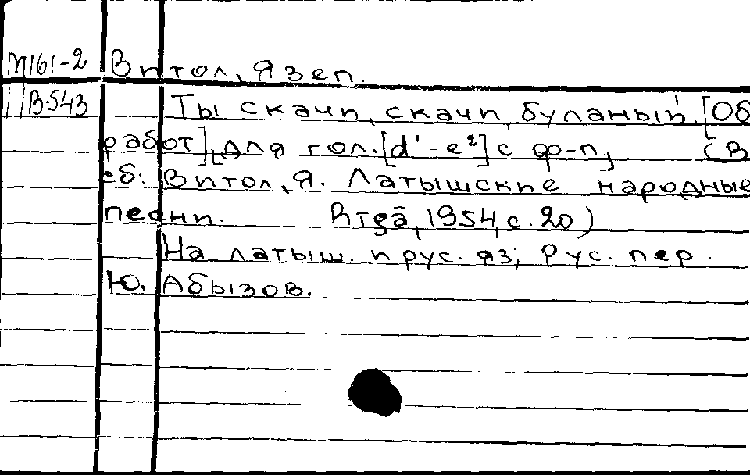 М161-2 Витол, Язеп.
В543 Ты скачи, скачи, буланый. [Об
работ], для гол. [d¹-e²] с ф-п, (В
сб: Витол, Я. Латышские народные
песни. Rīgā, 1954, с. 20)
На латыш. и рус. яз; Рус. пер.
Ю. Абызов.